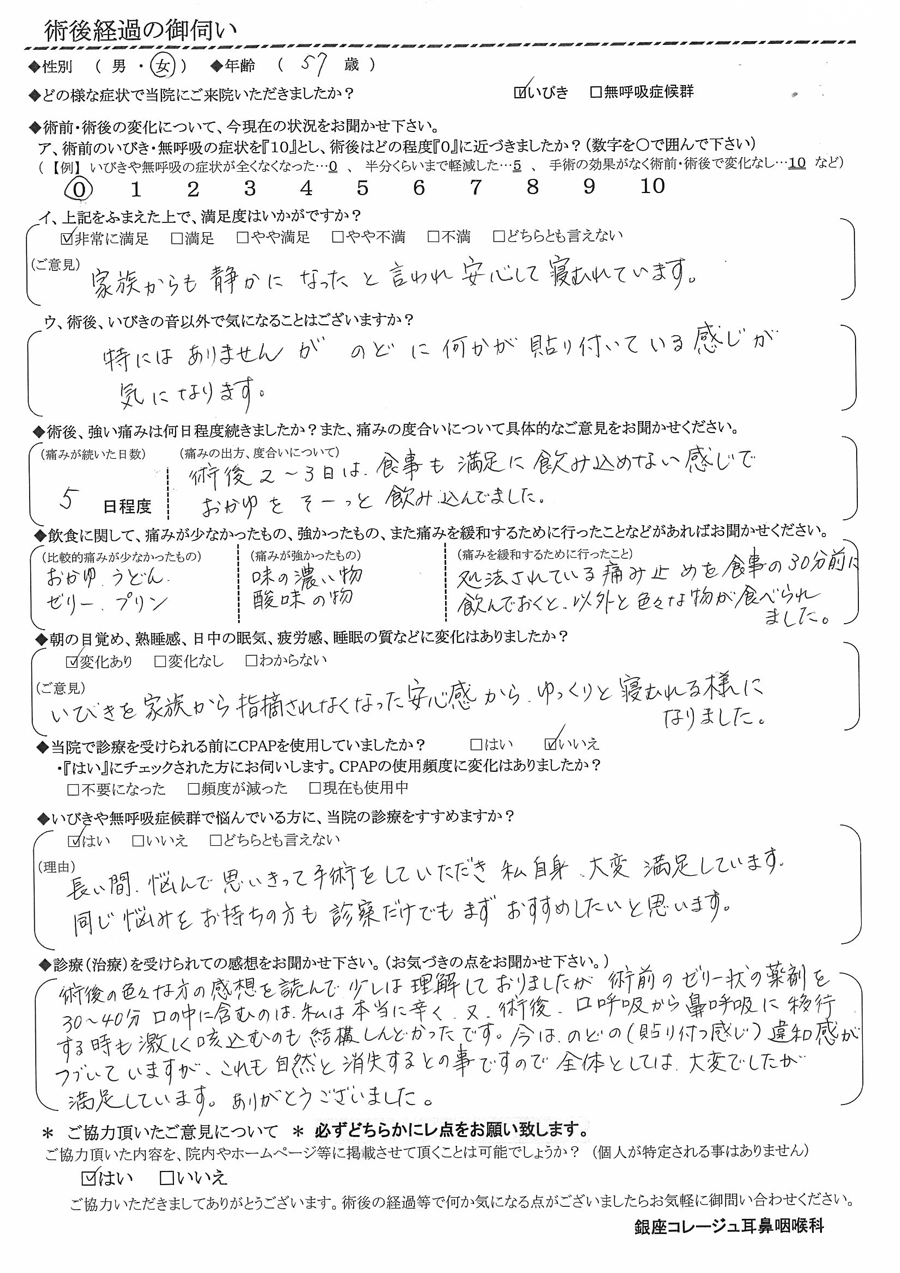 術後経過の御伺い
◆性別 ( 男 ・ 女 ) ◆年齢 ( 57 歳 )
◆どの様な症状で当院にご来院いただきましたか? ☑いびき □無呼吸症候群
◆術前・術後の変化について、今現在の状況をお聞かせ下さい。
ア、術前のいびき・無呼吸の症状を『10』とし、術後はどの程度『0』に近づきましたか?(数字を○で囲んで下さい)
(【例】いびきや無呼吸の症状が全くなくなった…0 、 半分くらいまで軽減した…5 、 手術の効果がなく術前・術後で変化なし…10 など)
0 1 2 3 4 5 6 7 8 9 10
イ、上記をふまえた上で、満足度はいかがですか?
☑非常に満足 □満足 □やや満足 □やや不満 □不満 □どちらとも言えない
(ご意見)
家族からも静かになったと言われ安心して寝むれています。
ウ、術後、いびきの音以外で気になることはございますか?
特にはありませんが のどに何かが貼り付いている感じが
気になります。
◆術後、強い痛みは何日程度続きましたか?また、痛みの度合いについて具体的なご意見をお聞かせください。
(痛みが続いた日数) (痛みの出方、度合いについて)
術後2〜3日は、食事も満足に飲み込めない感じで
5 日程度 おかゆをそーっと飲み込んでました。
◆飲食に関して、痛みが少なかったもの、強かったもの、また痛みを緩和するために行ったことなどがあればお聞かせください。
(比較的痛みが少なかったもの) (痛みが強かったもの) (痛みを緩和するために行ったこと)
おかゆ、うどん、 味の濃い物 処法されている痛み止めを食事の30分前に
ゼリー、プリン 酸味の物 飲んでおくと、以外と色々な物が食べられ
ました。
◆朝の目覚め、熟睡感、日中の眠気、疲労感、睡眠の質などに変化はありましたか?
☑変化あり □変化なし □わからない
(ご意見)
いびきを家族から指摘されなくなった安心感から、ゆっくりと寝むれる様に
なりました。
◆当院で診療を受けられる前にCPAPを使用していましたか? □はい ☑いいえ
・『はい』にチェックされた方にお伺いします。CPAPの使用頻度に変化はありましたか?
□不要になった □頻度が減った □現在も使用中
◆いびきや無呼吸症候群で悩んでいる方に、当院の診療をすすめますか?
☑はい □いいえ □どちらとも言えない
(理由)
長い間、悩んで思いきって手術をしていただき私自身、大変満足しています。
同じ悩みをお持ちの方も診察だけでもまずおすすめしたいと思います。
◆診療(治療)を受けられての感想をお聞かせ下さい。(お気づきの点をお聞かせ下さい。)
術後の色々な方の感想を読んで少しは理解しておりましたが術前のゼリー状の薬剤を
30〜40分口の中に含むのは、私は本当に辛く、又、術後、口呼吸から鼻呼吸に移行
する時も激しく咳込むのも結構しんどかったです。今は、のどの(貼り付つ感じ)違和感が
つづいていますが、これも自然と消失するとの事ですので全体としては、大変でしたが
満足しています。ありがとうございました。
* ご協力頂いたご意見について * 必ずどちらかにレ点をお願い致します。
ご協力頂いた内容を、院内やホームページ等に掲載させて頂くことは可能でしょうか? (個人が特定される事はありません)
☑はい □いいえ
ご協力いただきましてありがとうございます。術後の経過等で何か気になる点がございましたらお気軽に御問い合わせください。
銀座コレージュ耳鼻咽喉科